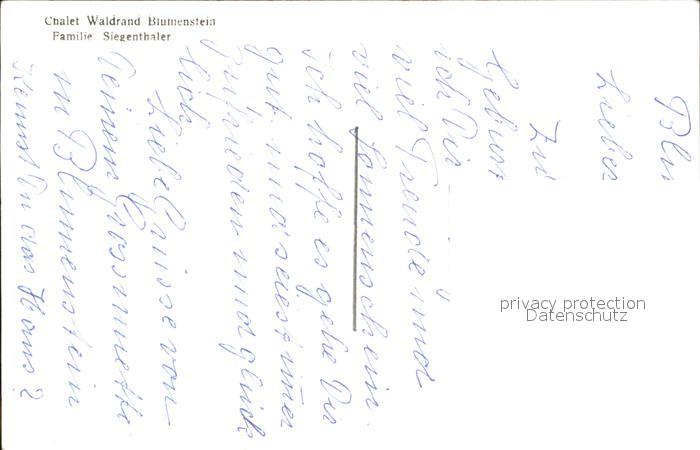 Chalet Waldrand Blumenstein
Familie Siegenthaler
Blu
Lieber
Zu
Geburt
ich Dir
viel Freude und
viel Sonnenschein.
Ich hoffe es gehe Dir
gut und seiest immer
zufrieden und glück
lich.
Liebe Grüsse von
Deinem Grossmuetti
in Blumenstein
Kennst Du das Haus?
privacy protection
Datenschutz